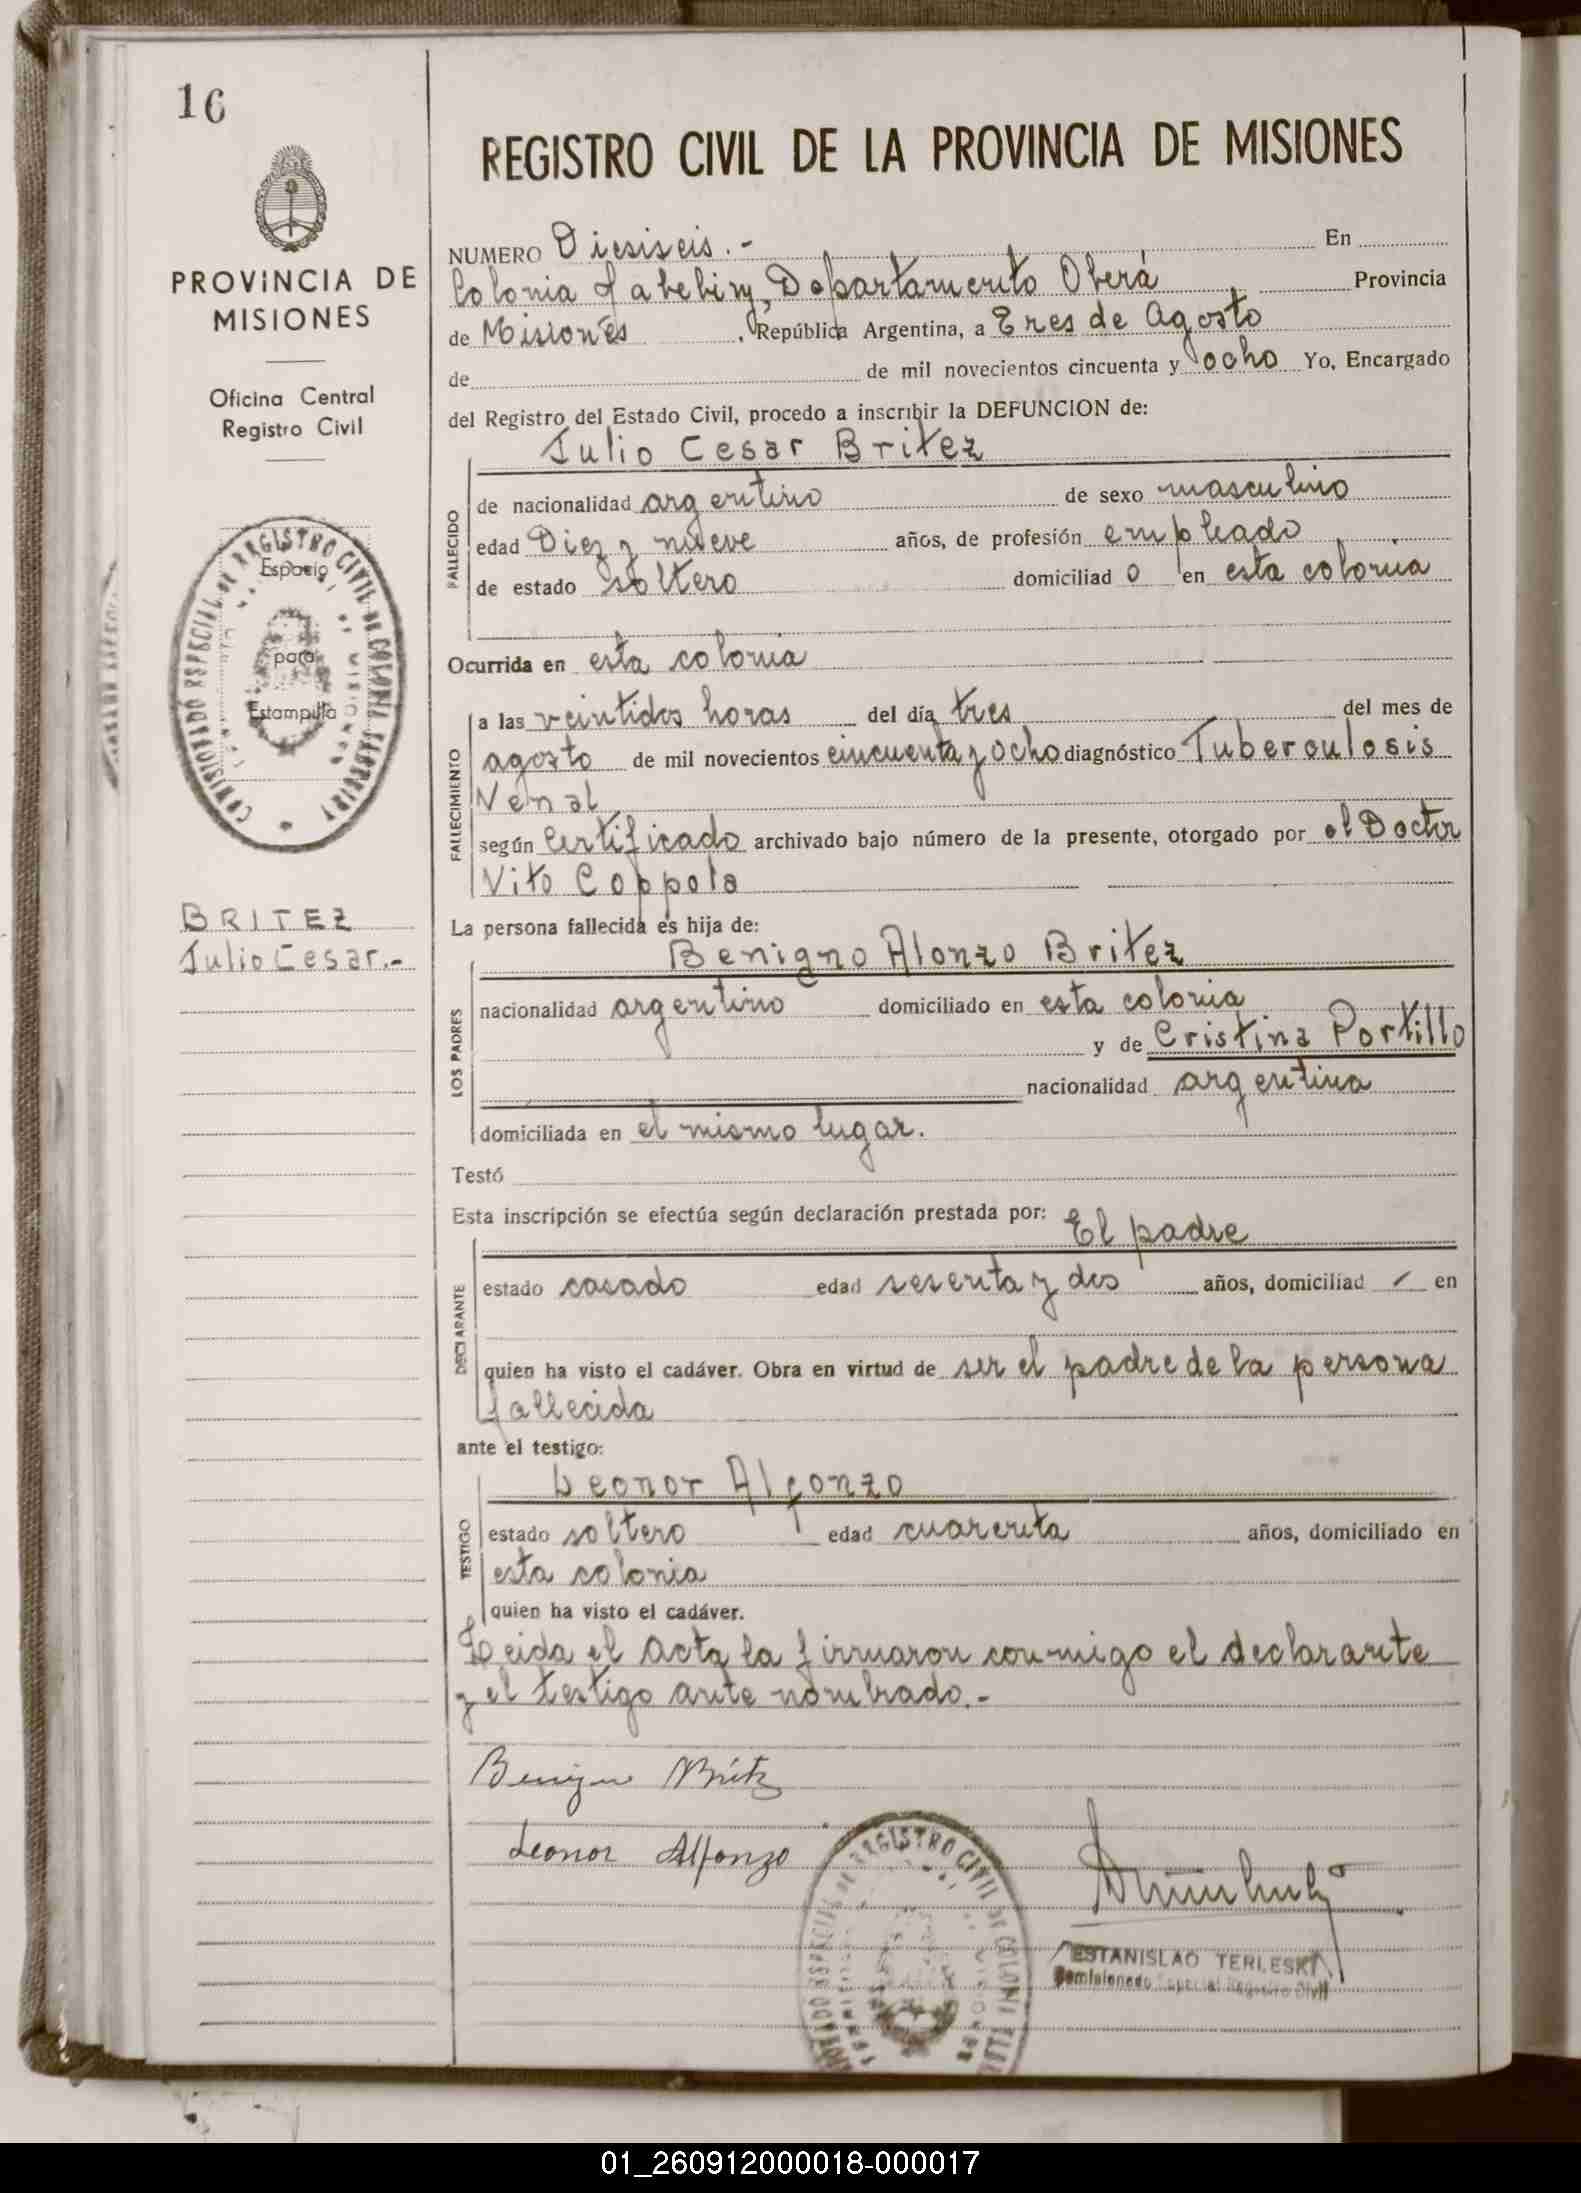 16
REGISTRO CIVIL DE LA PROVINCIA DE MISIONES
PROVINCIA DE
MISIONES
Oficina Central
Registro Civil
COMISIONADO ESPECIAL DE REGISTRO CIVIL DE COLONIA YABEBIRY
MISIONES
Espacio
para
Estampilla
BRITEZ
Julio Cesar.-
NUMERO Diesiseis.- En
Colonia Yabebiry, Departamento Oberá Provincia
de Misiones, República Argentina, a Tres de Agosto
de de mil novecientos cincuenta y ocho Yo, Encargado
del Registro del Estado Civil, procedo a inscribir la DEFUNCION de:
Julio Cesar Britez
FALLECIDO
de nacionalidad argentino de sexo masculino
edad Diez y nueve años, de profesión empleado
de estado soltero domiciliad o en esta colonia
Ocurrida en esta colonia
FALLECIMIENTO
a las veintidos horas del día tres del mes de
agosto de mil novecientos cincuenta y ocho diagnóstico Tuberculosis
según Certificado archivado bajo número de la presente, otorgado por el Doctor
Vito Coppola
La persona fallecida es hija de:
Benigno Alonzo Britez
LOS PADRES
nacionalidad argentino domiciliado en esta colonia
y de Cristina Portillo
nacionalidad argentina
domiciliada en el mismo lugar.
Testó
Esta inscripción se efectúa según declaración prestada por: El padre
DECLARANTE
estado casado edad sesenta y dos años, domiciliad en
quien ha visto el cadáver. Obra en virtud de ser el padre de la persona
fallecida
ante el testigo:
Leonor Alfonzo
TESTIGO
estado soltero edad cuarenta años, domiciliado en
esta colonia
quien ha visto el cadáver.
Leida el acta la firmaron conmigo el declarante
y el testigo ante nombrado.-
Benigno Britez
Leonor Alfonzo
ESTANISLAO TERLESKI
Comisionado Especial Registro Civil
01_260912000018-000017